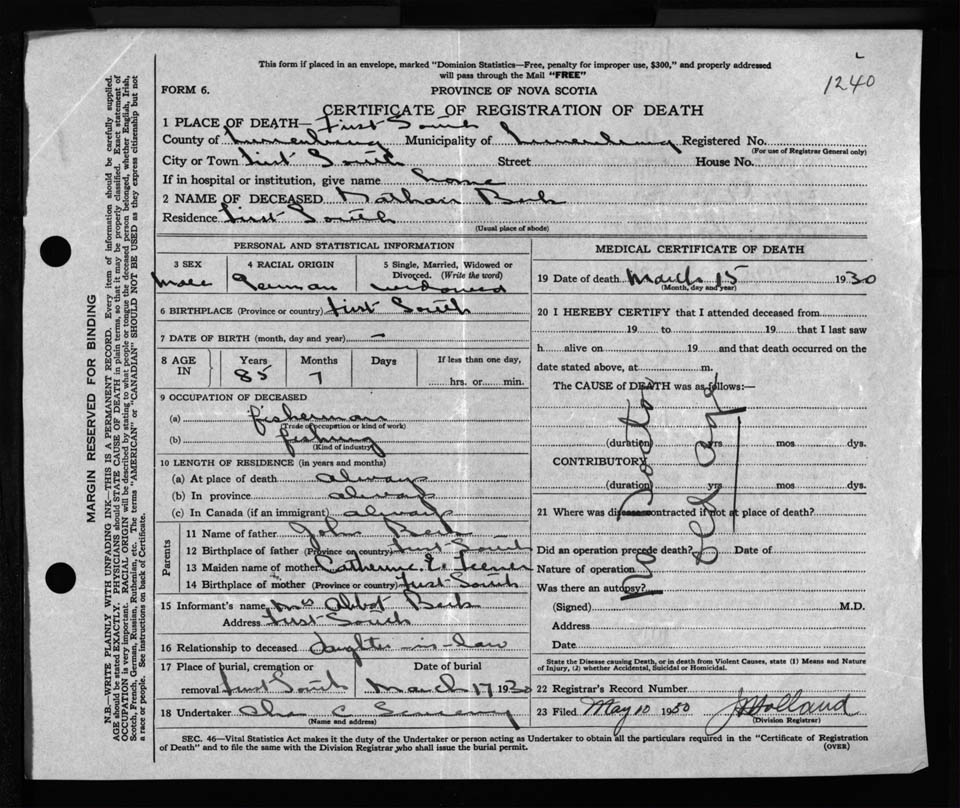 This form if placed in an envelope, marked "Dominion Statistics—Free, penalty for improper use, $300," and properly addressed
will pass through the Mail "FREE"
1240
FORM 6.
PROVINCE OF NOVA SCOTIA
CERTIFICATE OF REGISTRATION OF DEATH
1 PLACE OF DEATH— First South
County of Lunenburg Municipality of Lunenburg Registered No.
(For use of Registrar General only)
City or Town First South Street House No.
If in hospital or institution, give name home
2 NAME OF DECEASED Nathan Beck
Residence First South
(Usual place of abode)
PERSONAL AND STATISTICAL INFORMATION
3 SEX 4 RACIAL ORIGIN 5 Single, Married, Widowed or
Divorced. (Write the word)
Male German widowed
6 BIRTHPLACE (Province or country) First South
7 DATE OF BIRTH (month, day and year) —
8 AGE IN Years Months Days If less than one day,
85 7 hrs. or min.
9 OCCUPATION OF DECEASED
(a) fisherman
(Trade occupation or kind of work)
(b) fishing
(Kind of industry)
10 LENGTH OF RESIDENCE (in years and months)
(a) At place of death always
(b) In province always
(c) In Canada (if an immigrant) always
Parents
11 Name of father John Beck
12 Birthplace of father (Province or country) First South
13 Maiden name of mother Catherine E.
14 Birthplace of mother (Province or country) First South
15 Informant's name Mrs Abbot Beck
Address First South
16 Relationship to deceased daughter-in-law
17 Place of burial, cremation or Date of burial
removal First South March 17 1930
18 Undertaker Chas C
(Name and address)
MEDICAL CERTIFICATE OF DEATH
19 Date of death March 15 1930
(Month, day and year)
20 I HEREBY CERTIFY that I attended deceased from
19 to 19 that I last saw
h alive on 19 and that death occurred on the
date stated above, at m.
The CAUSE of DEATH was as follows:—
(duration) yrs mos dys.
CONTRIBUTORY
(duration) yrs mos dys.
No Doctor
Old age
21 Where was disease contracted if not at place of death?
Did an operation precede death? Date of
Nature of operation
Was there an autopsy?
(Signed) M.D.
Address
Date
State the Disease causing Death, or in death from Violent Causes, state (1) Means and Nature
of Injury, (2) whether Accidental, Suicidal or Homicidal.
22 Registrar's Record Number
23 Filed May 10 1930 Holland
(Division Registrar)
SEC. 46—Vital Statistics Act makes it the duty of the Undertaker or person acting as Undertaker to obtain all the particulars required in the "Certificate of Registration
of Death" and to file the same with the Division Registrar who shall issue the burial permit.
(OVER)
MARGIN RESERVED FOR BINDING
N.B.—WRITE PLAINLY WITH UNFADING INK—THIS IS A PERMANENT RECORD. Every item of information should be carefully supplied.
AGE should be stated EXACTLY. PHYSICIANS should STATE CAUSE OF DEATH in plain terms, so that it may be properly classified. Exact statement of
OCCUPATION is very important. RACIAL ORIGIN will be described by stating to what people or tongue the deceased person belonged, whether English, Irish,
Scotch, French, German, Russian, Ruthenian, etc. The terms "AMERICAN" or "CANADIAN" SHOULD NOT BE USED as they express citizenship but not
a race or people. See instructions on back of Certificate.